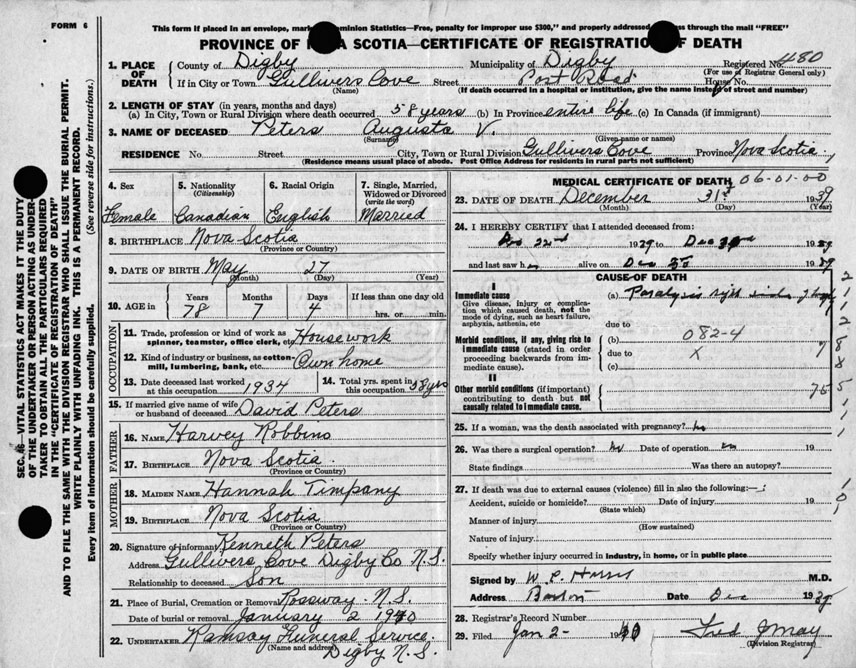 FORM 6
This form if placed in an envelope, mar Dominion Statistics—Free, penalty for improper use $300," and properly addressed ss through the mail "FREE"
PROVINCE OF A SCOTIA—CERTIFICATE OF REGISTRATIO F DEATH
1. PLACE OF DEATH { County of Digby Municipality of Digby Registered No. 480
(For use of Registrar General only)
If in City or Town Gullivers Cove Street Post Road House No.
(Name) (If death occurred in a hospital or institution, give the name instead of street and number)
2. LENGTH OF STAY (in years, months and days)
(a) In City, Town or Rural Division where death occurred 58 years (b) In Province entire life (c) In Canada (if immigrant)
3. NAME OF DECEASED Peters Augusta V.
(Surname) (Given name or names)
RESIDENCE No. Street City, Town or Rural Division Gullivers Cove Province Nova Scotia
(Residence means usual place of abode. Post Office Address for residents in rural parts not sufficient)
4. Sex 5. Nationality 6. Racial Origin 7. Single, Married,
(Citizenship) Widowed or Divorced
(write the word)
Female Canadian English Married
8. BIRTHPLACE Nova Scotia
(Province or Country)
9. DATE OF BIRTH May 27
(Month) (Day) (Year)
10. AGE in Years Months Days If less than one day old
78 7 4 hrs. or min.
OCCUPATION
11. Trade, profession or kind of work as
spinner, teamster, office clerk, etc. Housework
12. Kind of industry or business, as cotton-
mill, lumbering, bank, etc. Own home
13. Date deceased last worked 14. Total yrs. spent in
at this occupation 1934 this occupation 58 yrs
15. If married give name of wife
or husband of deceased David Peters
FATHER
16. NAME Harvey Robbins
17. BIRTHPLACE Nova Scotia
(Province or Country)
MOTHER
18. MAIDEN NAME Hannah Timpany
19. BIRTHPLACE Nova Scotia
(Province or Country)
20. Signature of informant Kenneth Peters
Address Gullivers Cove Digby Co N.S.
Relationship to deceased Son
21. Place of Burial, Cremation or Removal Rossway N.S.
Date of burial or removal January 2 1940
22. UNDERTAKER Ramsay Funeral Service
(Name and address) Digby N.S.
MEDICAL CERTIFICATE OF DEATH 06-01-00
23. DATE OF DEATH December 31st 1939
(Month) (Day) (Year)
24. I HEREBY CERTIFY that I attended deceased from:
Dec 22nd 1939 to Dec 1939
and last saw h alive on Dec 1939
CAUSE OF DEATH
I
Immediate cause (a) Paralysis right side
Give disease, injury or complica-
tion which caused death, not the
mode of dying, such as heart failure,
asphyxia, asthenia, etc due to
Morbid conditions, if any, giving rise to (b) 082-4
immediate cause (stated in order due to X 7
proceeding backwards from im-
mediate cause). (c)
II
Other morbid conditions (if important)
contributing to death but not
causally related to immediate cause.
75
2
1
1
2
8
8
5
1
1
1
25. If a woman, was the death associated with pregnancy? no
26. Was there a surgical operation? no Date of operation 19
State findings Was there an autopsy?
27. If death was due to external causes (violence) fill in also the following:—
Accident, suicide or homicide? Date of injury 19
(State which)
Manner of injury
(How sustained)
Nature of injury
Specify whether injury occurred in industry, in home, or in public place
1
0
1
Signed by M.D.
Address Date Dec 1939
28. Registrar's Record Number
29. Filed Jan 2- 1940 Fred J May
(Division Registrar)
SEC. VITAL STATISTICS ACT MAKES IT THE DUTY
OF THE UNDERTAKER OR PERSON ACTING AS UNDER-
TAKER TO OBTAIN ALL THE PARTICULARS REQUIRED
IN THE "CERTIFICATE OF REGISTRATION OF DEATH"
AND TO FILE THE SAME WITH THE DIVISION REGISTRAR WHO SHALL ISSUE THE BURIAL PERMIT.
WRITE PLAINLY WITH UNFADING INK. THIS IS A PERMANENT RECORD.
Every item of information should be carefully supplied. (See reverse side for instructions.)